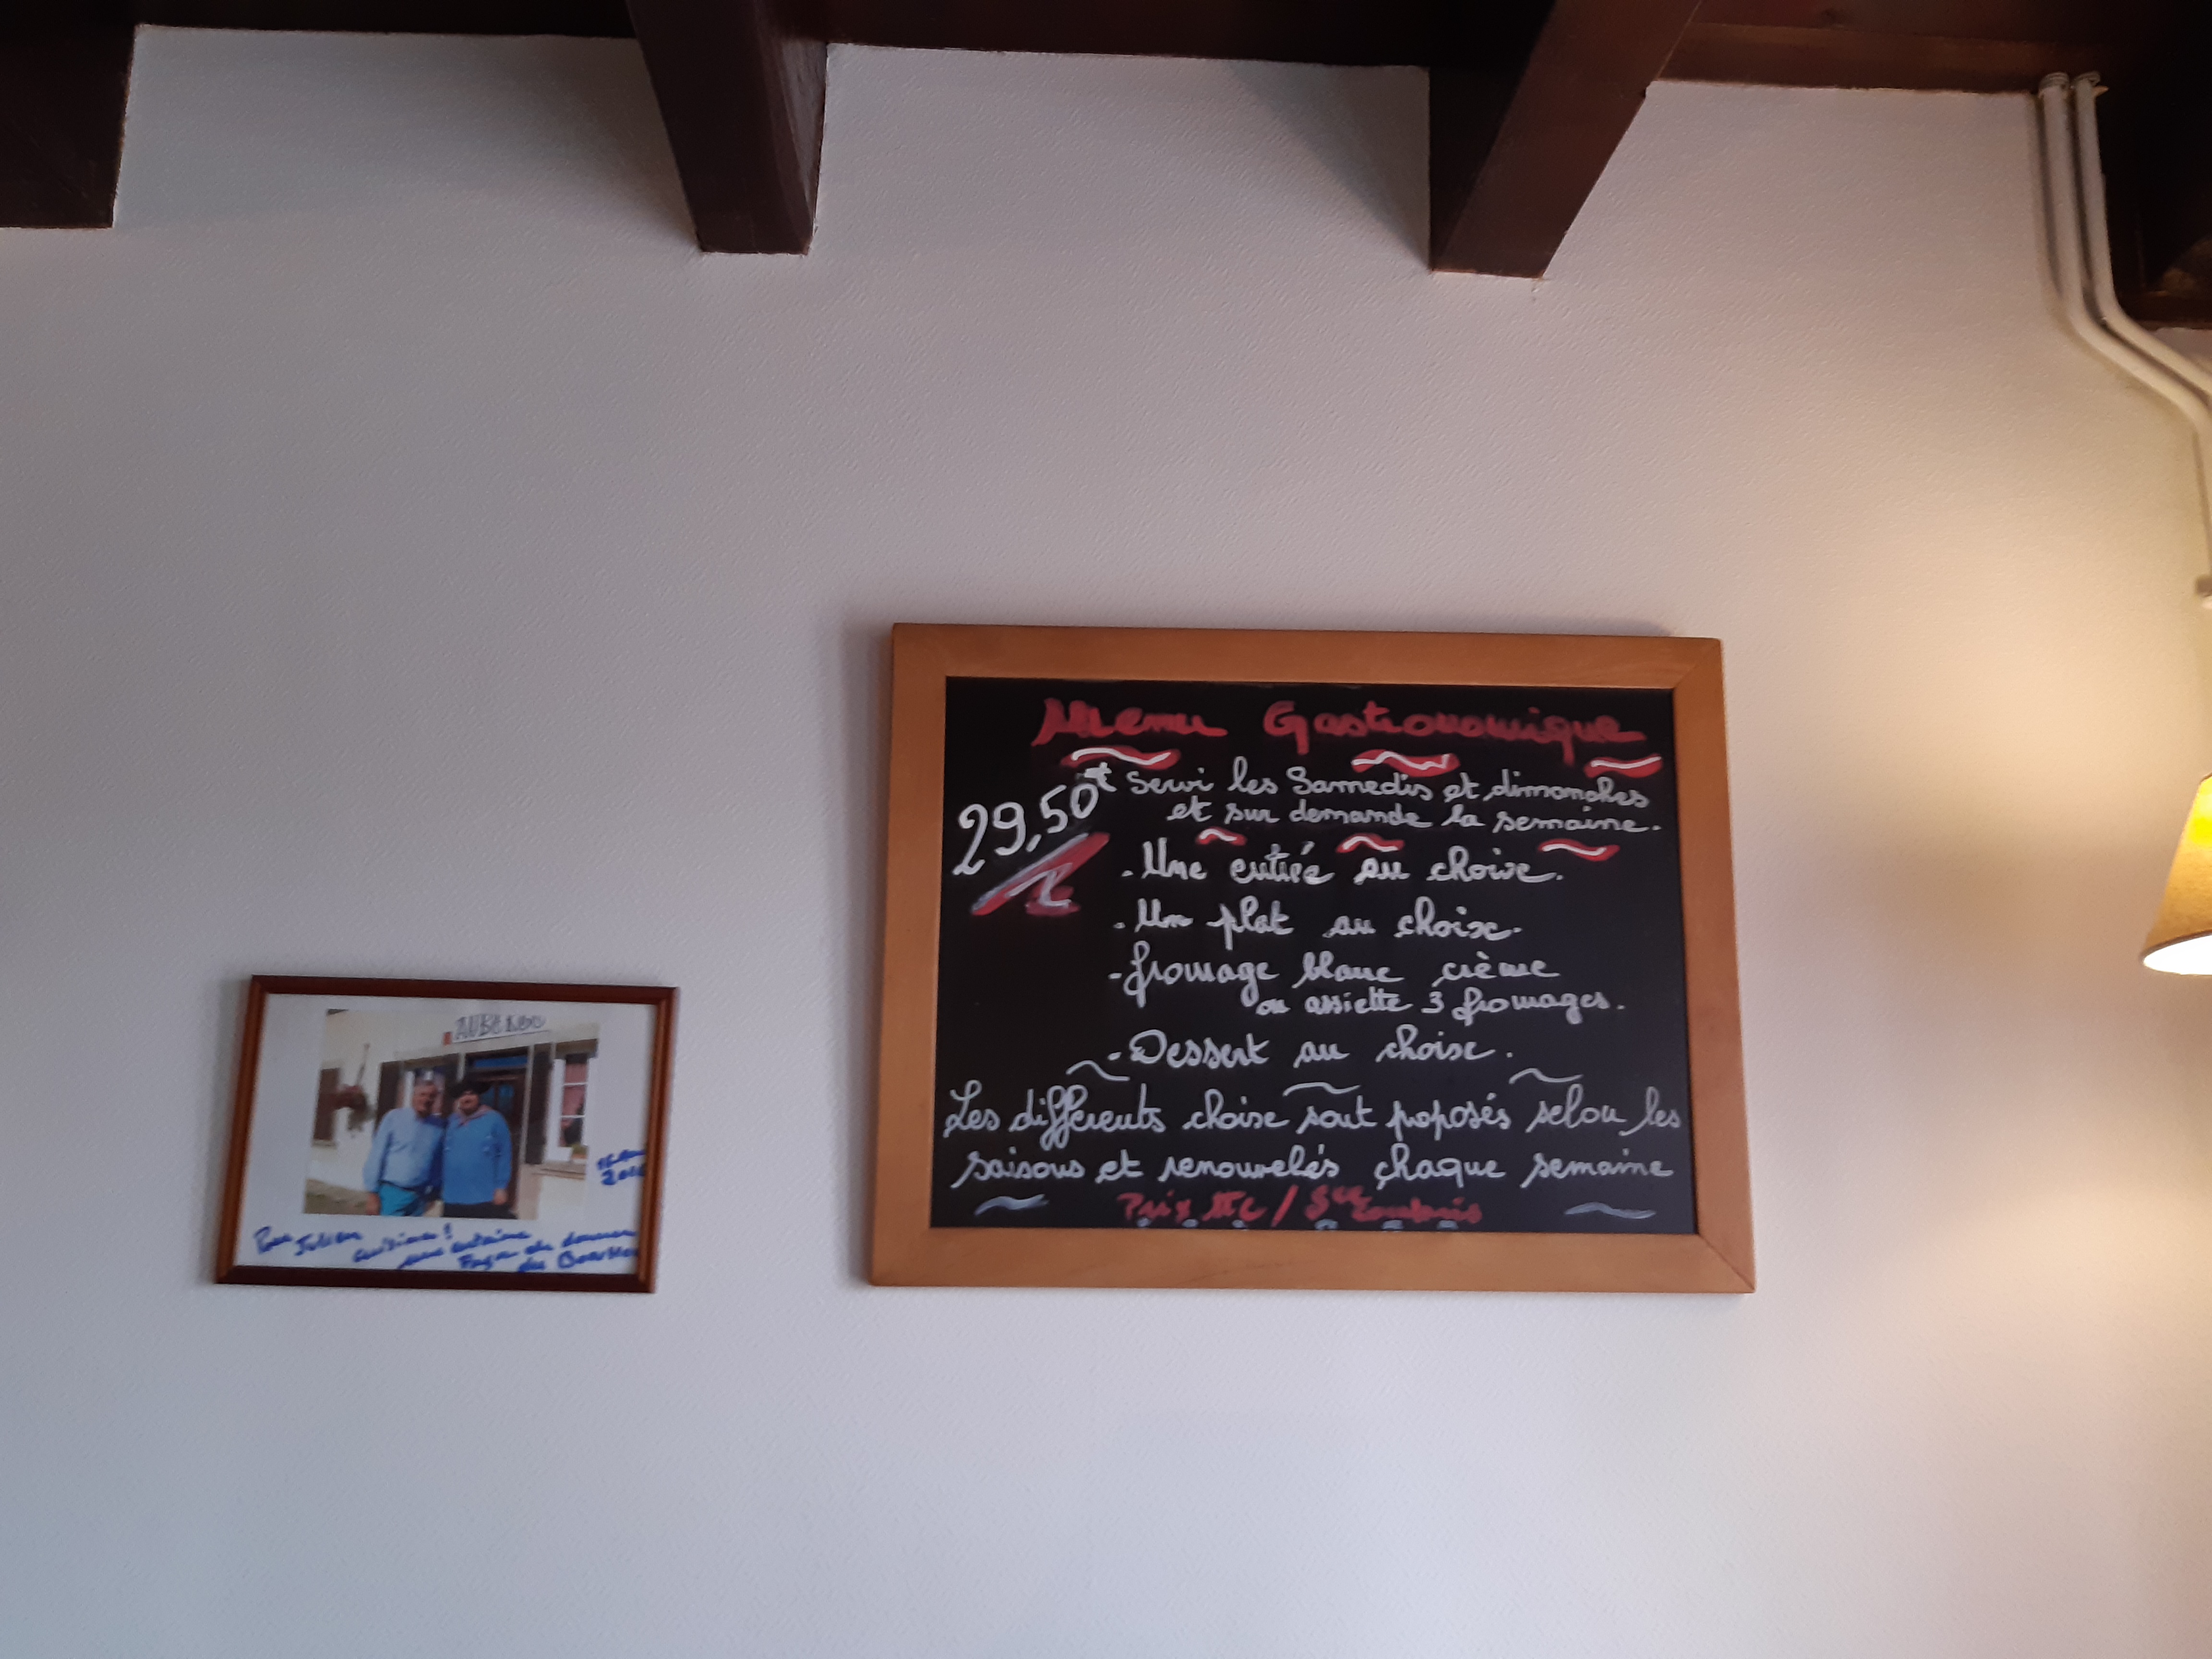 Menu Gastronomique
29,50€
Servi les Samedis et dimanches
et sur demande la semaine.
- Une entrée au choix.
- Un plat au choix.
- fromage blanc crème
ou assiette 3 fromages.
- Dessert au choix.
Les différents choix sont poposés selon les
saisons et renouvelés chaque semaine
Prix ttc / Sce Compris
AUBERGE
Pour Julien